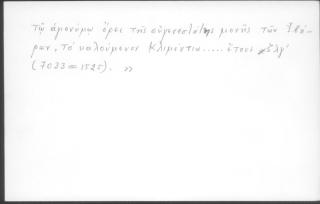 τῷ ὁμωνύμῳ ὄρει τῆς εὐαγεστάτης μονῆς τῶν Ἰβή-
ρων, τὸ καλούμενον Κλιμέντια..... ἔτους ζλγʹ
(7033 = 1525). »